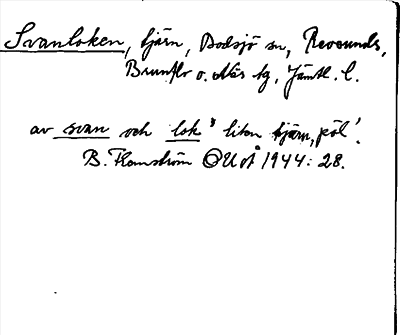 Svanloken, tjärn, Bodsjö sn, Revsunds,
Brunflo o. Näs tg, Jämtl. l.
av svan och lok 'liten tjärn, pöl'.
B. Flemström OUoÅ 1944: 28.